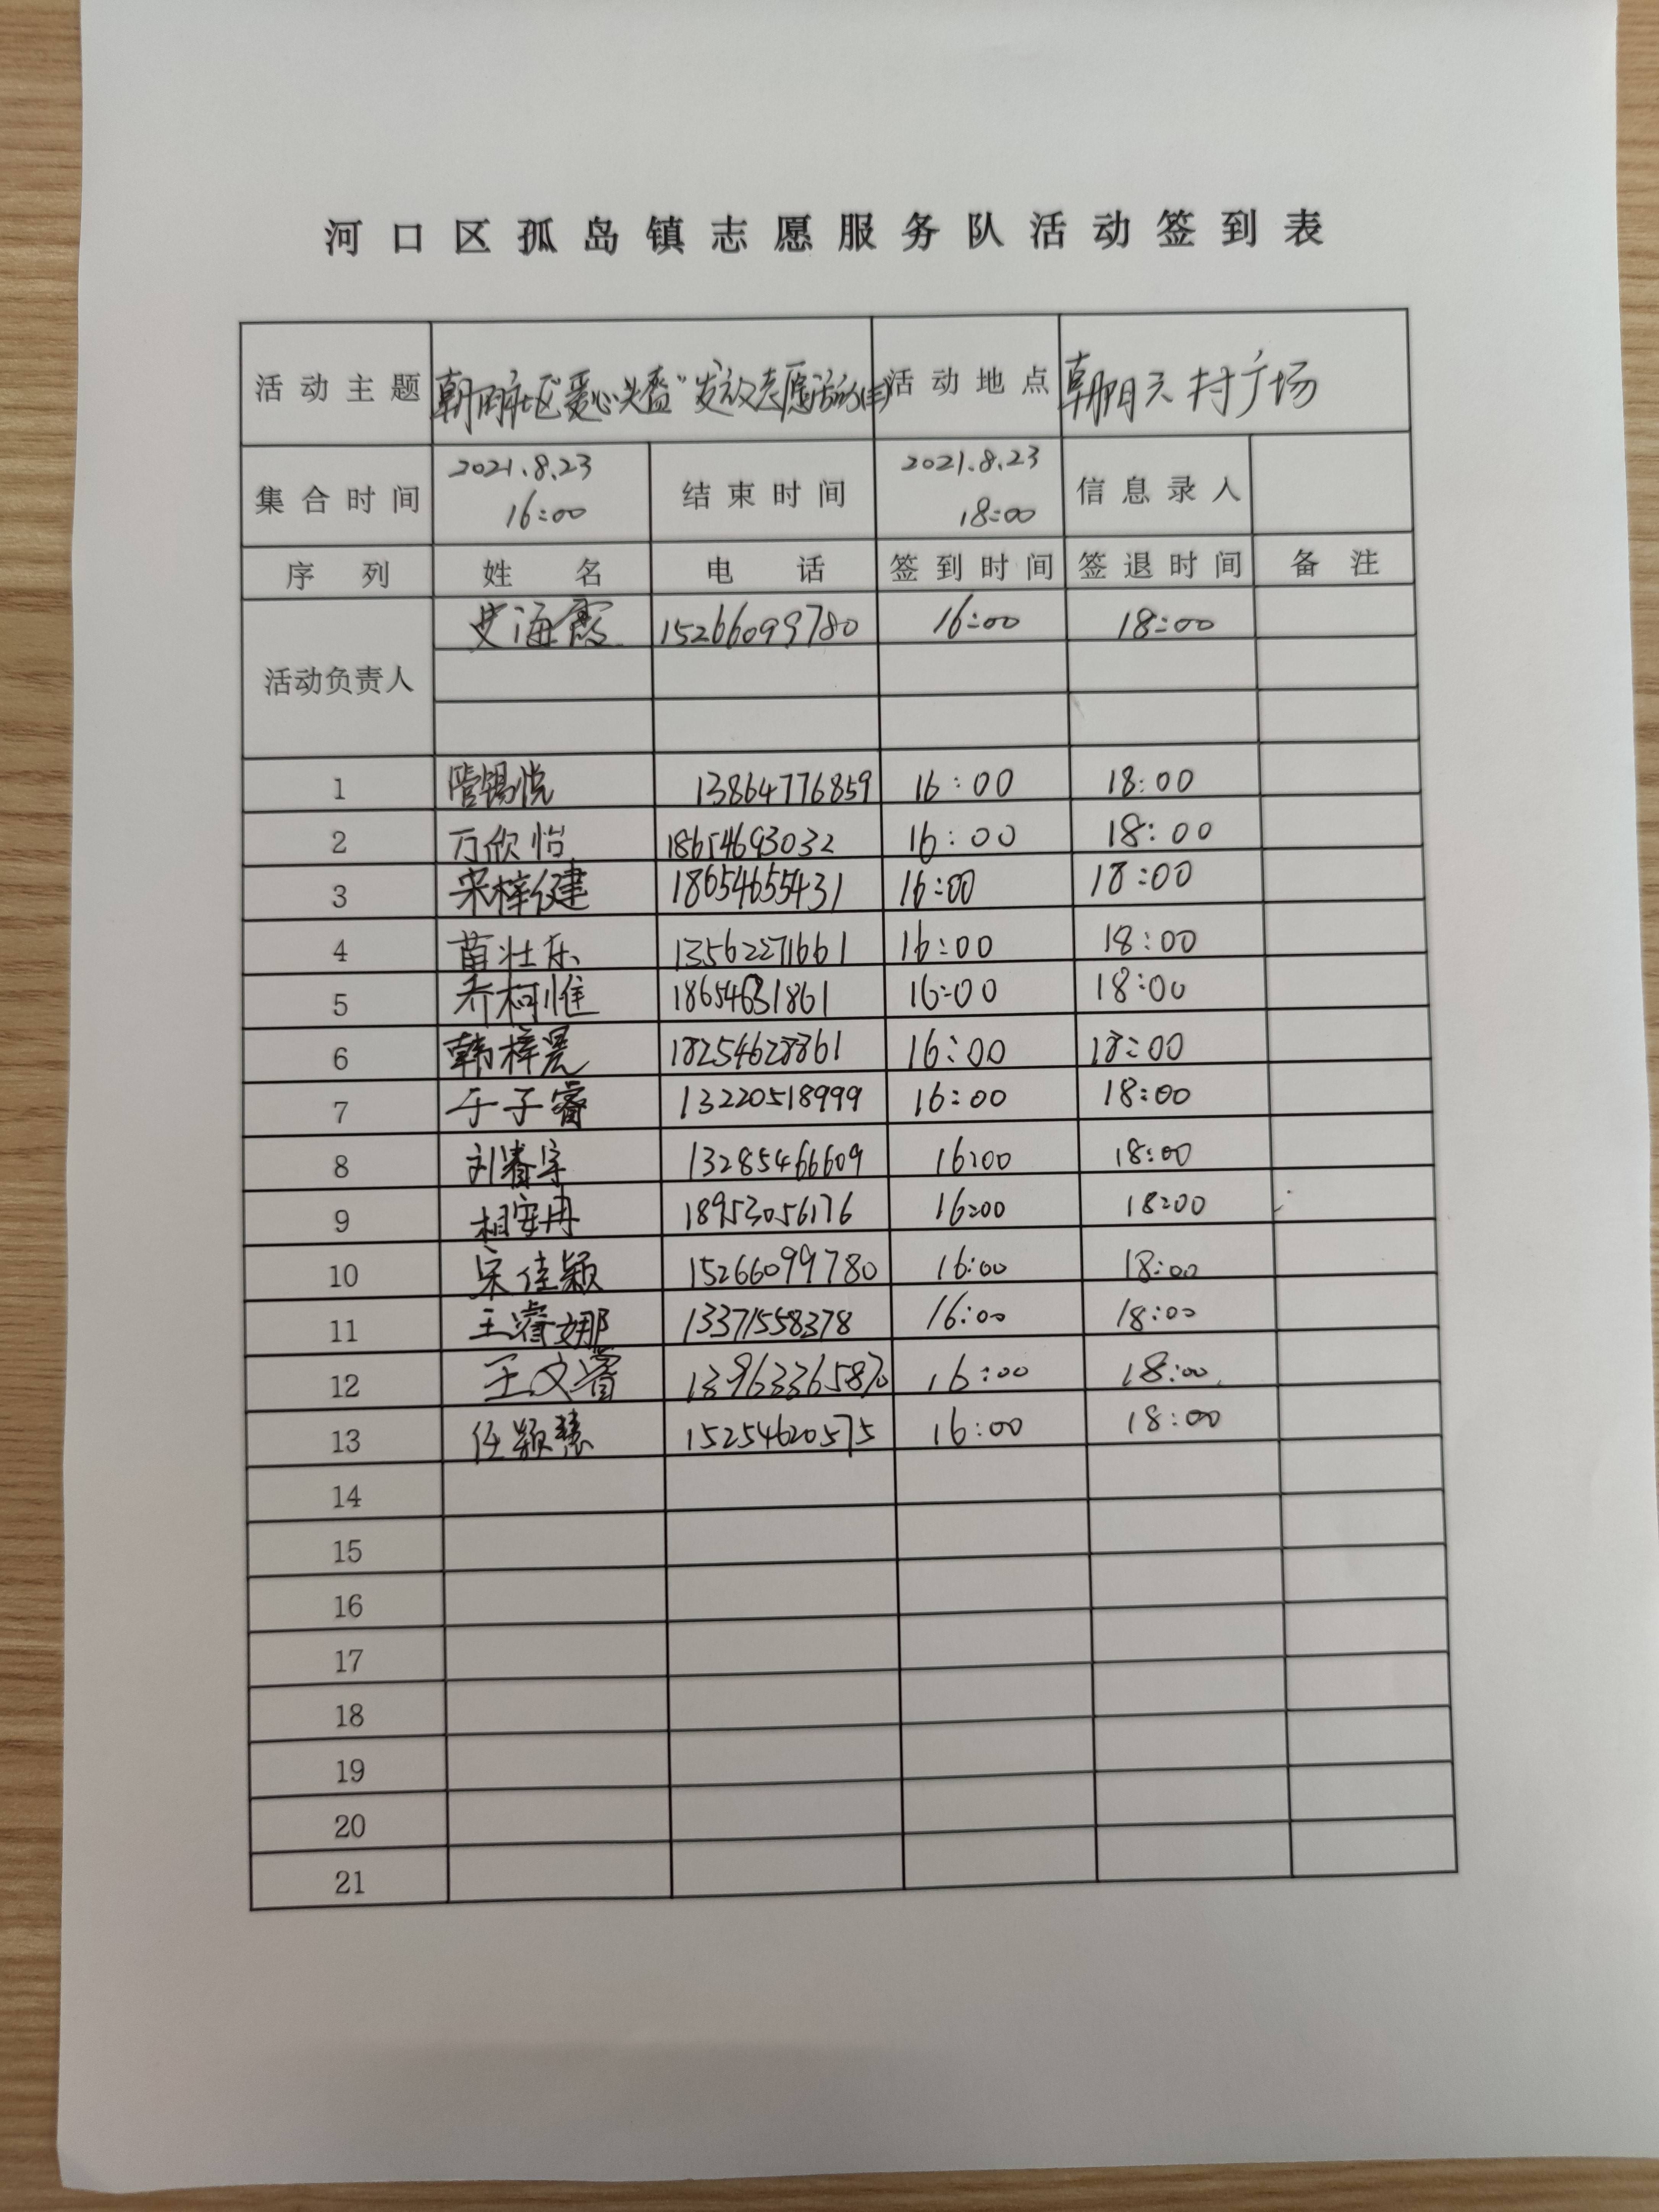 河口区孤岛镇志愿服务队活动签到表
活动主题 朝阳社区"爱心头盔"发放志愿活动 活动地点 朝阳六村广场
集合时间 2021.8.23 16:00 结束时间 2021.8.23 18:00 信息录入
序列 姓名 电话 签到时间 签退时间 备注
活动负责人 史海霞 15266099780 16:00 18:00
1 管锡悦 13864776859 16:00 18:00
2 万欣怡 18654693032 16:00 18:00
3 宋梓健 18654655431 16:00 18:00
4 苗壮乐 13562271661 16:00 18:00
5 乔柯惟 18654631861 16:00 18:00
6 韩梓晨 18254628861 16:00 18:00
7 于子睿 13220518999 16:00 18:00
8 刘睿宇 13285466609 16:00 18:00
9 相安冉 18953056176 16:00 18:00
10 宋佳颖 15266099780 16:00 18:00
11 王睿娜 13371558378 16:00 18:00
12 王文睿 13963365870 16:00 18:00
13 任颖慧 15254620575 16:00 18:00
14
15
16
17
18
19
20
21